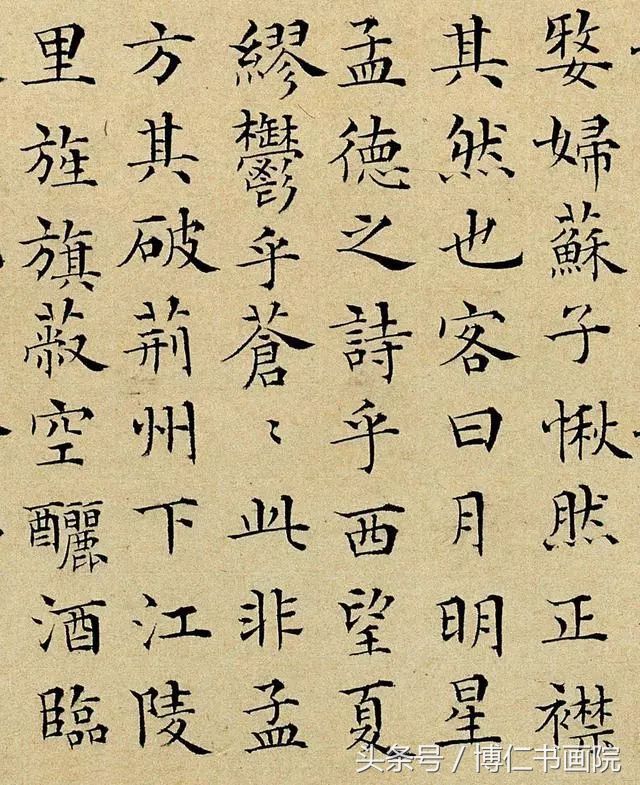 嫠婦蘇子愀然正襟
其然也客曰月明星
孟德之詩乎西望夏
繆鬱乎蒼〻此非孟
方其破荊州下江陵
里旌旗蔽空釃酒臨
头条号 / 博仁书画院